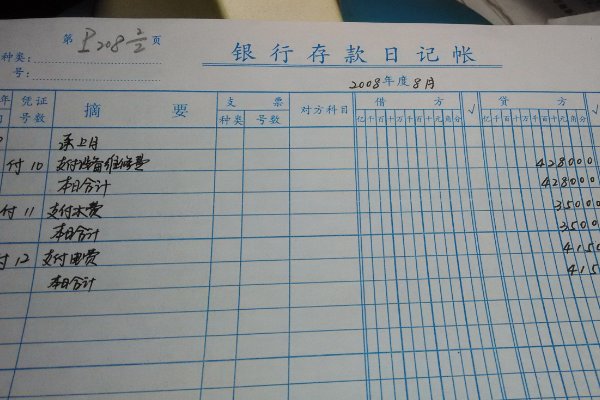 第 P208 2/2 页
种类:
银行存款日记帐
号:
2008年度8月
年 凭证 摘 要 支 票 对方科目 借 方 √ 贷 方 √
号数 种类 号数 亿千百十万千百十元角分 亿千百十万千百十元角分
承上月
付 10 支付设备维修费 428000
本日合计 428000
付 11 支付水费 35000
本日合计 3500
付 12 支付电费 415
本日合计 415